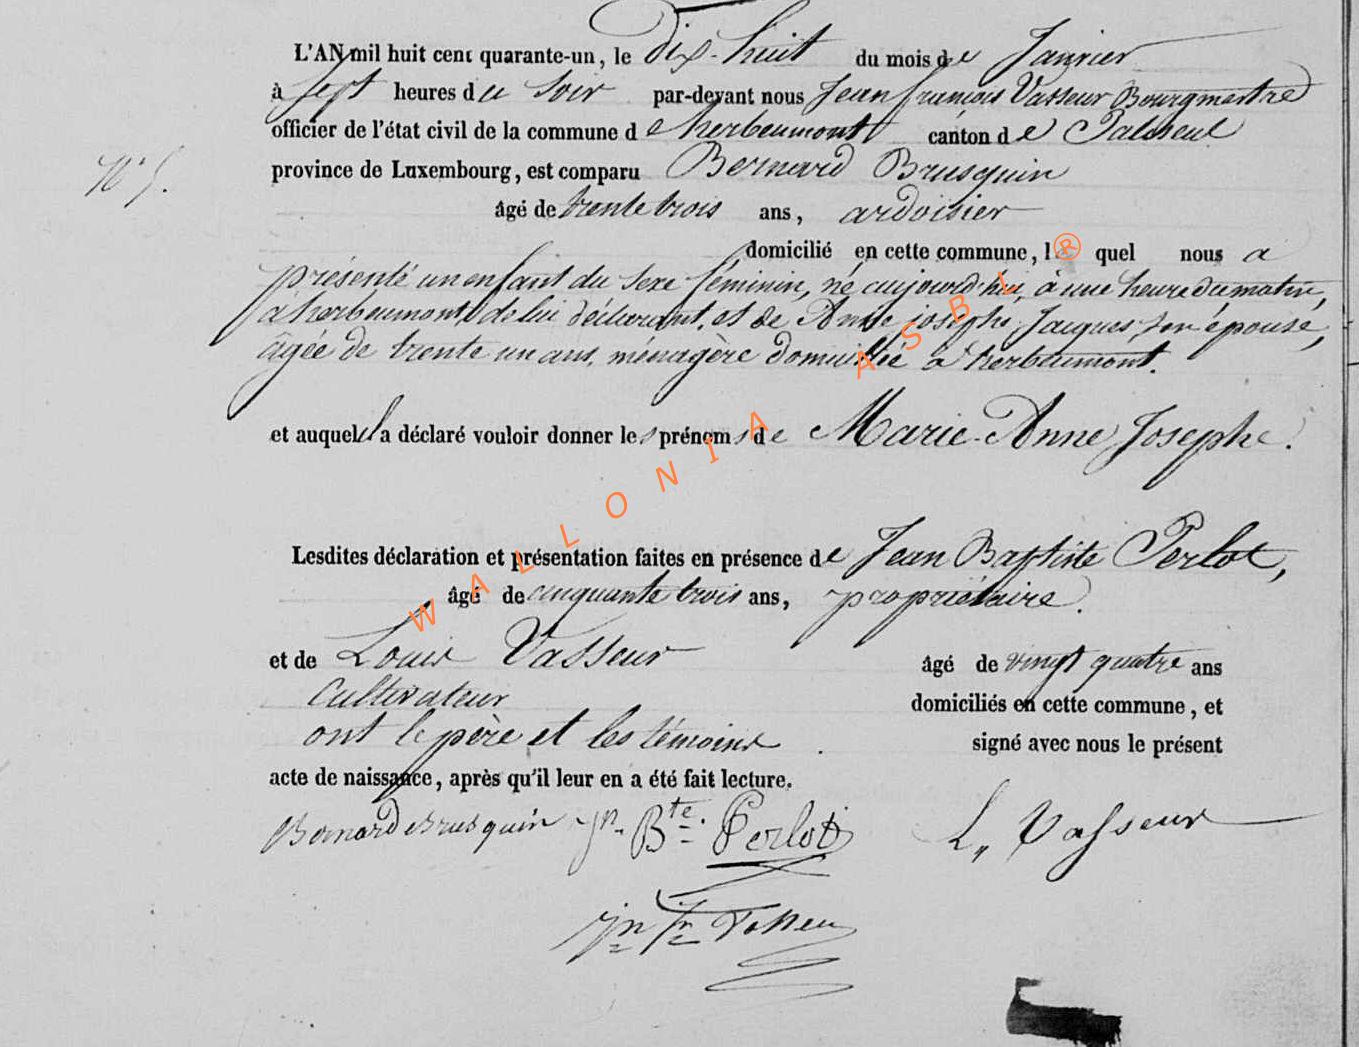 L'AN mil huit cent quarante-un, le Dix-huit du mois de Janvier
à sept heures du soir par-devant nous Jean françois Vasseur Bourgmestre
officier de l'état civil de la commune de herbeumont canton de Paliseul
N° 5. province de Luxembourg, est comparu Bernard Brusquin
âgé de trente trois ans, ardoisier
domicilié en cette commune, l quel nous a
présenté un enfant du sexe féminin, né aujourd'hui, à une heure du matin,
à herbeumont, de lui déclarant, et de Anne josephe Jacques son épouse,
âgée de trente un ans, ménagère domiciliée à herbeumont.
et auquel il a déclaré vouloir donner les prénoms de Marie-Anne Josephe.
Lesdites déclaration et présentation faites en présence de Jean Baptiste Perlot,
âgé de cinquante trois ans, propriétaire.
et de Louis Vasseur âgé de vingt quatre ans
Cultivateur domiciliés en cette commune, et
ont le père et les témoins signé avec nous le présent
acte de naissance, après qu'il leur en a été fait lecture.
Bernard Brusquin Jn. Bte. Perlot L. Vasseur
Jn fr Vasseur
WALLONIA ASBL ®